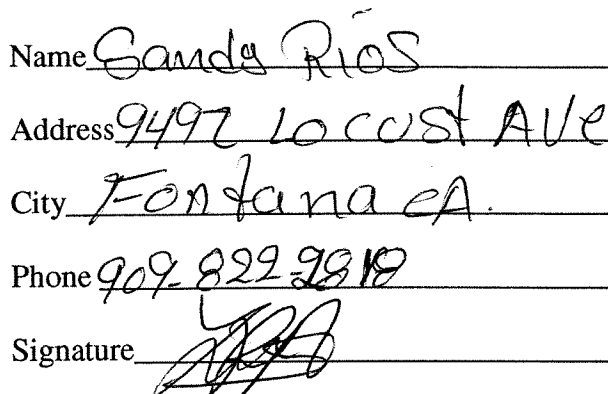 Name Sandy Rios
Address 9497 Locust Ave
City Fontana CA.
Phone 909-822-9818
Signature